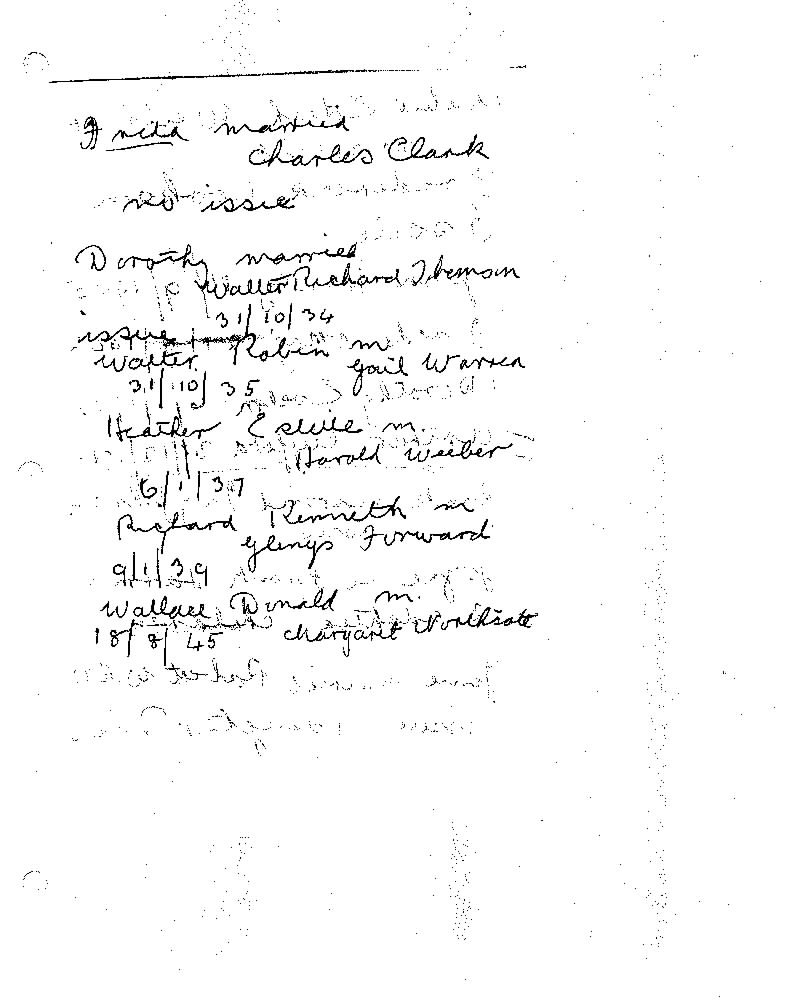 married
Charles Clark
no issue
Dorothy married
Walter Richard
31/10/34
issue
Walter Robin m
Gail Warren
31/10/35
Heather Estelle m.
Harold Weeber
6/1/37
Richard Kenneth m
Glenys Forward
9/1/39
Wallace Donald m.
18/8/45 Margaret